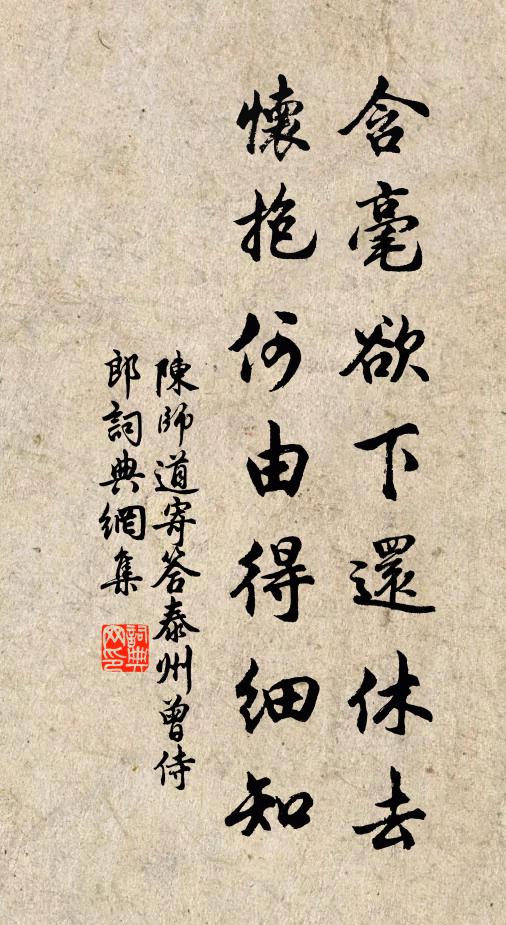 含毫欲下還休去
懷抱何由得細知
陳師道寄答泰州曾侍
郎詞典網集
詞典网印